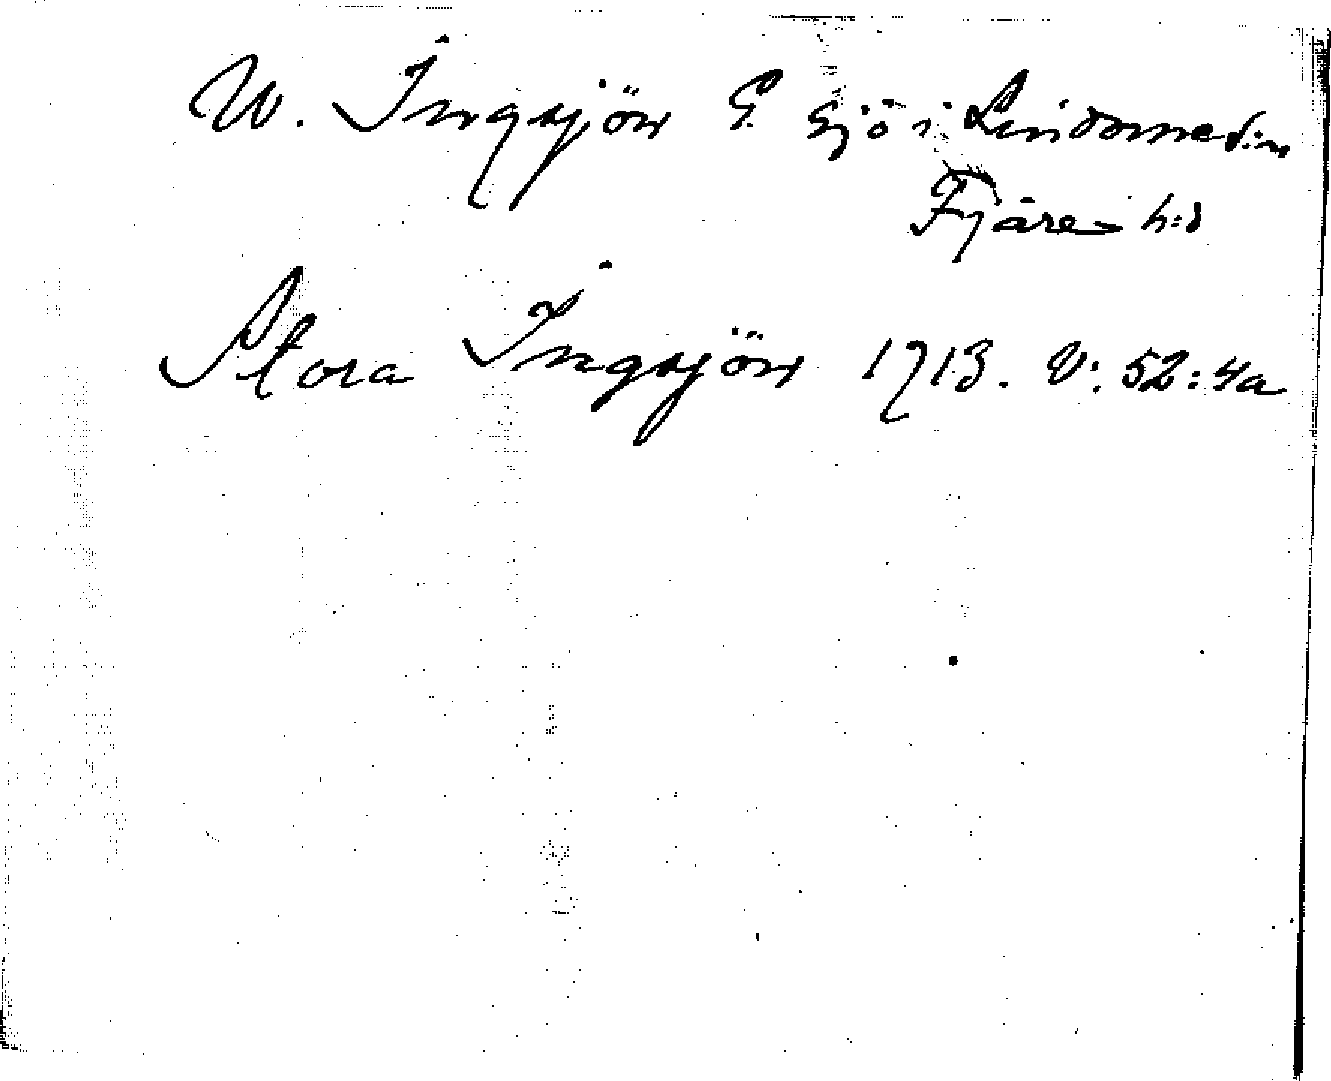 W. Ingsjön G. sjö i Lindome s:n
Fjäre h:d
Stora Ingsjön 1713. V: 52:4a